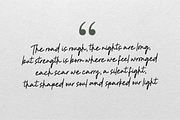 “
The road is rough, the nights are long,
but strength is born where we feel wronged
each scar we carry, a silent fight,
that shaped our soul and sparked our light